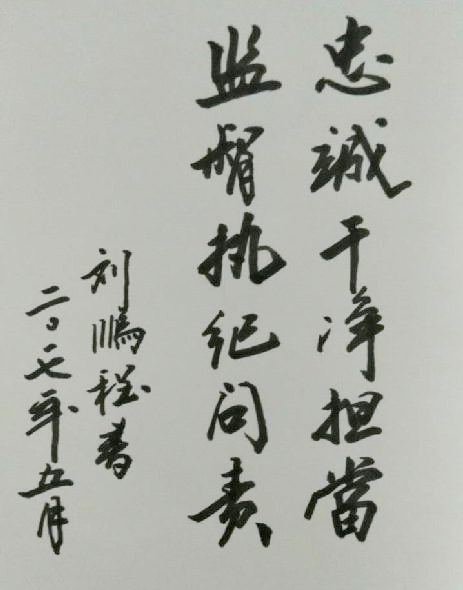 忠誠干净担當
监督执纪问责
刘鵬程書
二〇一七年五月